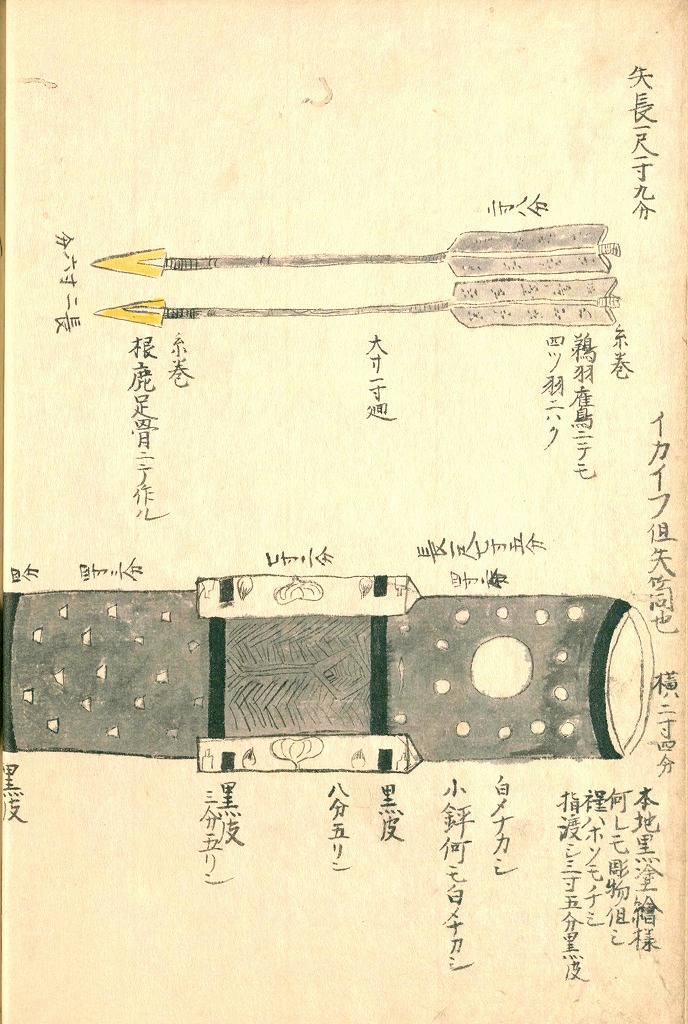 矢長一尺一寸九分
二寸八分
糸巻
鵜羽隺鳥ニテモ
四ツ羽ニハク
大サ一寸廻
糸巻
根鹿足骨ニテ作ル
長二寸六分
イカイフ但矢筒也
横二寸四分
長一尺七寸五分
七寸二分
四寸二分
四分
本地黒塗繪様
何レモ彫物但シ
指渡シ三寸五分黒皮
白メナカシ
小鋲何モ白メナカシ
黒皮
八分五リン
黒皮
三分五リン
黒皮